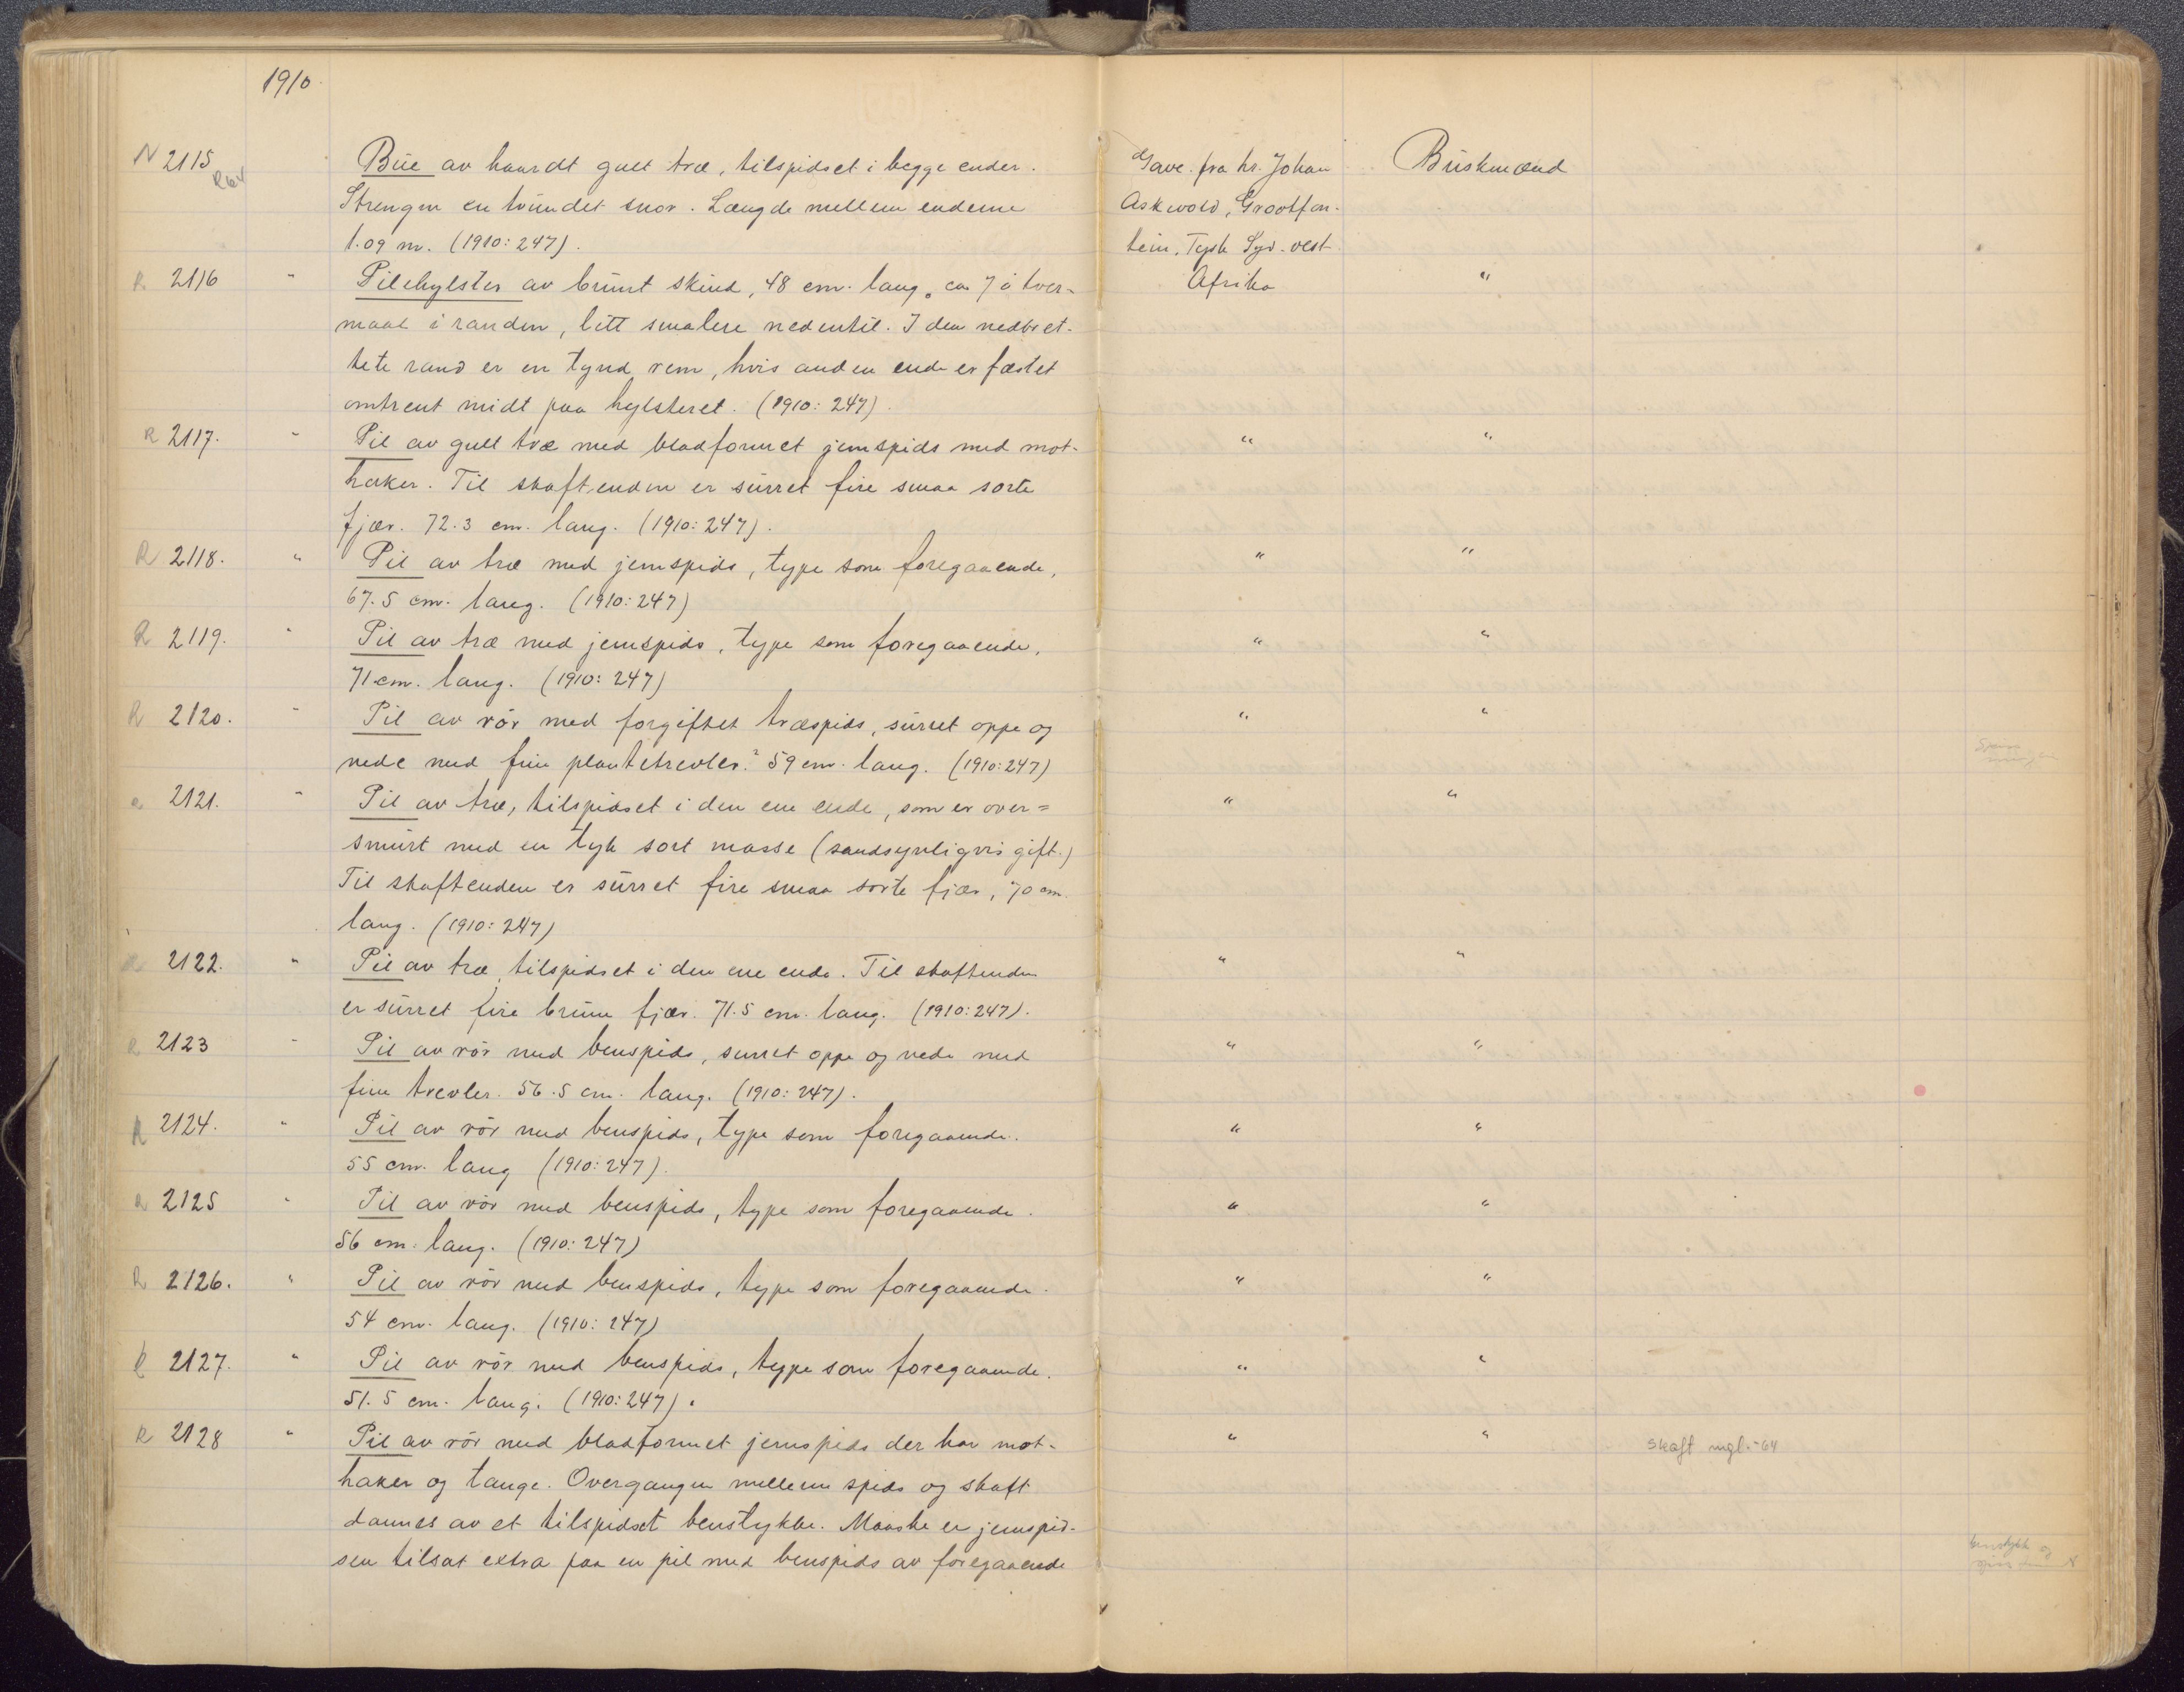 1910.
N 2115 R64 Bue av haardt gult træ, tilspidset i begge ender. Gave fra hr. Johan Buskmænd
Strengen en tvundet snor. Længde mellem enderne Askvold, Grootfon-
1.09 m. (1910:247). tein, Tysk Syd-vest
R 2116 " Pilehylster av brunt skind, 48 cm. lang, ca 7 i tver- Afrika "
maal i randen, litt smalere nedentil. I den nedbret-
tete rand er en tynd rem, hvis anden ende er fæstet
omtrent midt paa hylsteret. (1910: 247).
R 2117. " Pil av gult træ med bladformet jernspids med mot- " "
haker. Til skaftenden er surret fire smaa sorte
fjær. 72.3 cm. lang. (1910:247).
R 2118. " Pil av træ med jernspids, type som foregaaende, " "
67.5 cm. lang. (1910:247)
R 2119. " Pil av træ med jernspids, type som foregaaende, " "
71 cm. lang. (1910: 247)
R 2120. " Pil av rör med forgiftet træspids, surret oppe og " "
nede med fine plantetrevler. 59 cm. lang. (1910:247)
R 2121. " Pil av træ, tilspidset i den ene ende, som er over= " "
smurt med en tyk sort masse (sandsynligvis gift.)
Til skaftenden er surret fire smaa sorte fjær, 70 cm.
lang. (1910: 247)
R 2122. " Pil av træ, tilspidset i den ene ende. Til skaftenden " "
er surret fire brune fjær. 71.5 cm. lang. (1910:247).
R 2123 " Pil av rör med benspids, surret oppe og nede med " "
fine trevler. 56.5 cm. lang. (1910: 247).
R 2124. " Pil av rör med benspids, type som foregaaende. " "
55 cm. lang (1910:247).
R 2125 " Pil av rör med benspids, type som foregaaende. " "
56 cm. lang. (1910: 247)
R 2126. " Pil av rör med benspids, type som foregaaende. " "
54 cm. lang. (1910: 247)
R 2127. " Pil av rör med benspids, type som foregaaende. " "
51.5 cm. lang. (1910:247).
R 2128 " Pil av rör med bladformet jernspids der har mot- " " skaft mgl.-64
haker og tange. Overgangen mellem spids og skaft
dannes av et tilspidset benstykke. Maaske er jernspid-
sen tilsat extra paa en pil med benspids av foregaaende benstykk og